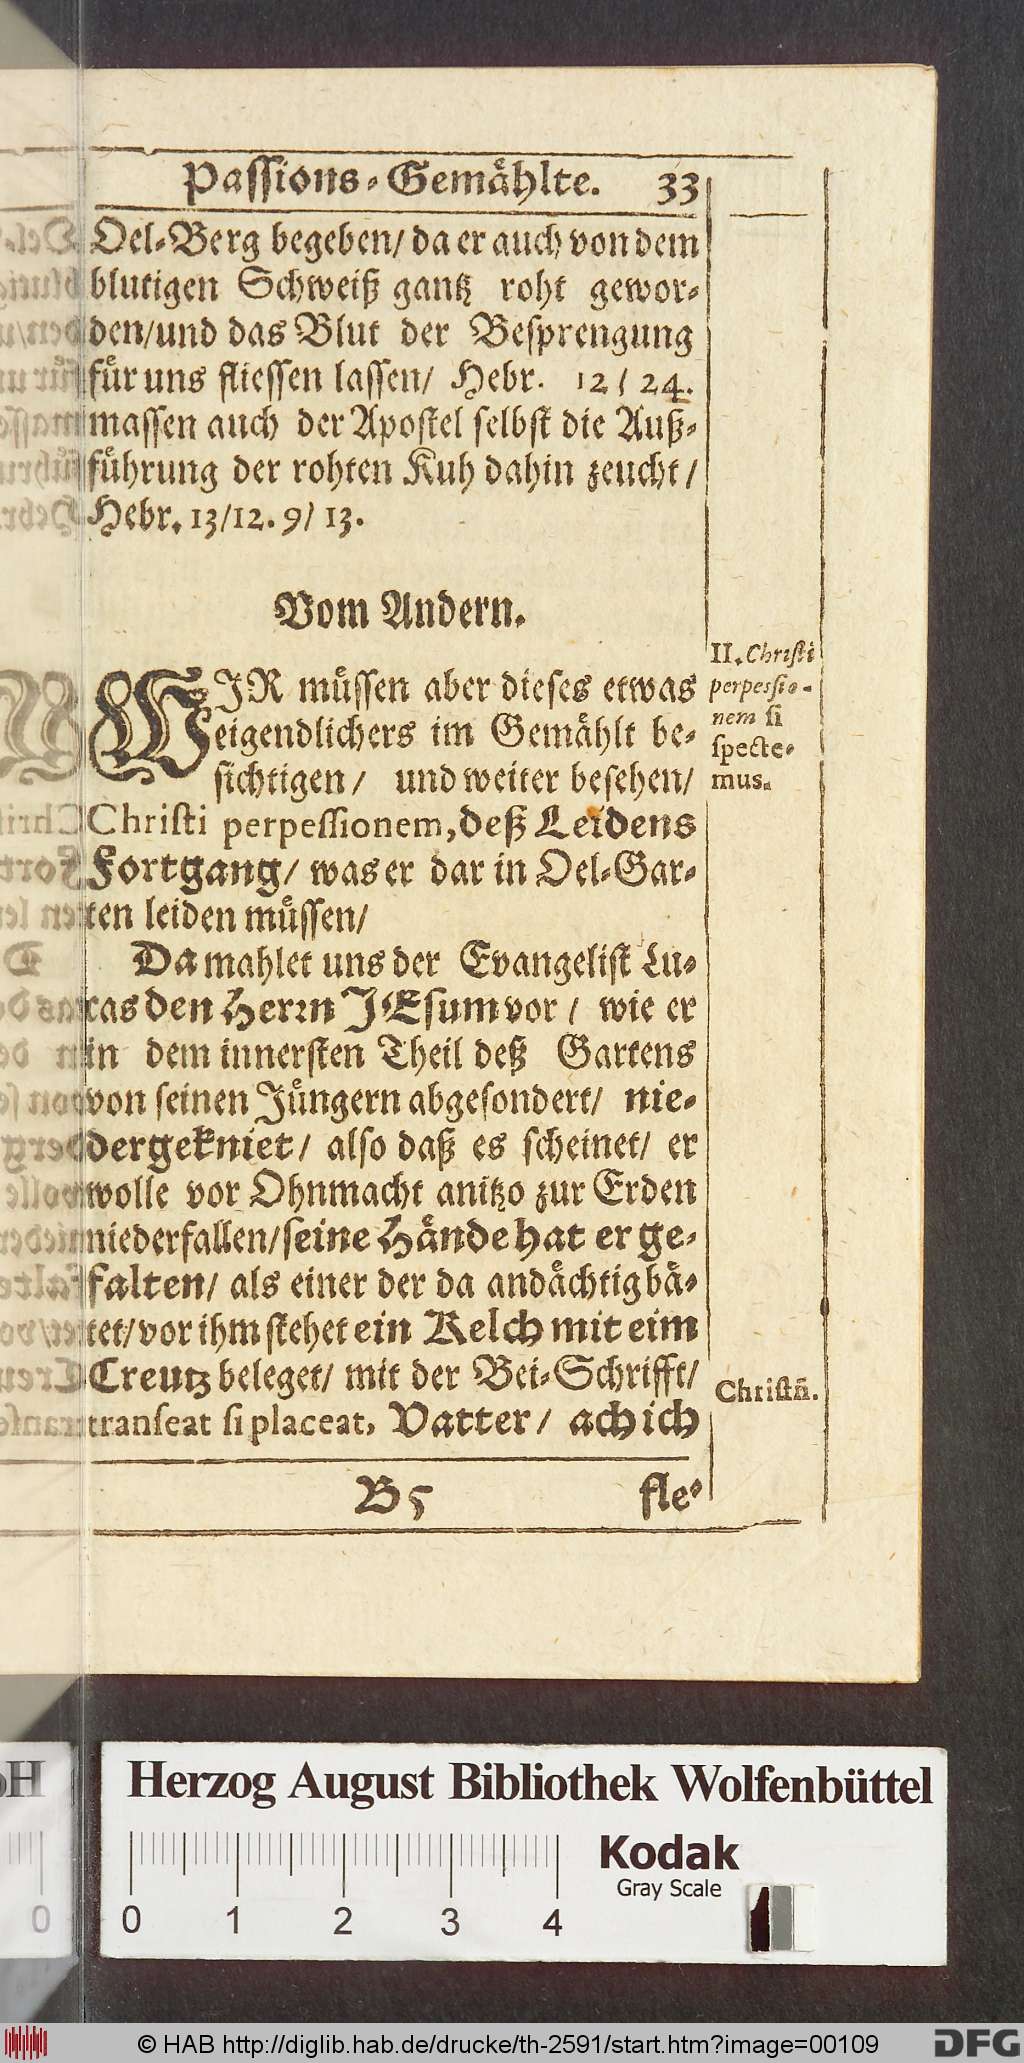 Passions-Gemählte. 33
Oel-Berg begeben/ da er auch von dem
blutigen Schweiß gantz roht gewor-
den/und das Blut der Besprengung
für uns fliessen lassen/ Hebr. 12/ 24.
massen auch der Apostel selbst die Auß-
führung der rohten Kuh dahin zeucht/
Hebr. 13/12. 9/ 13.
Vom Andern.
WJR müssen aber dieses etwas
eigendlichers im Gemählt be-
sichtigen/ und weiter besehen/
Christi perpessionem, deß Leidens
Fortgang/ was er dar in Oel-Gar-
ten leiden müssen/
Da mahlet uns der Evangelist Lu-
cas den Herrn JEsum vor/ wie er
in dem innersten Theil deß Gartens
von seinen Jüngern abgesondert/ nie-
dergekniet/ also daß es scheinet/ er
wolle vor Ohnmacht anitzo zur Erden
niederfallen/seine Hände hat er ge-
falten/ als einer der da andächtig bä-
tet/ vor ihm stehet ein Kelch mit eim
Creutz beleget/ mit der Bei-Schrifft/
transeat si placeat, Vatter/ ach ich
B5 fle-
II. Christi
perpessio-
nem si
specte-
mus.
Christū.
Herzog August Bibliothek Wolfenbüttel
Kodak
Gray Scale
0 0 1 2 3 4
© HAB http://diglib.hab.de/drucke/th-2591/start.htm?image=00109
DFG